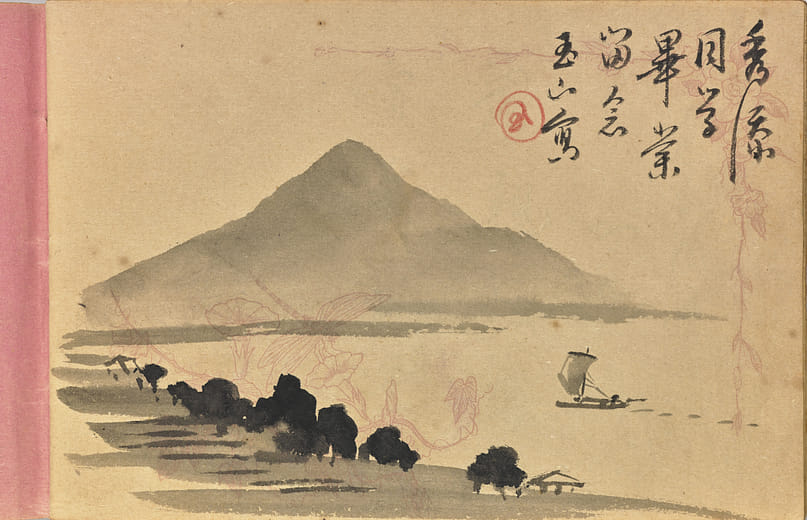 秀
同学
畢業
留念
玉山寫